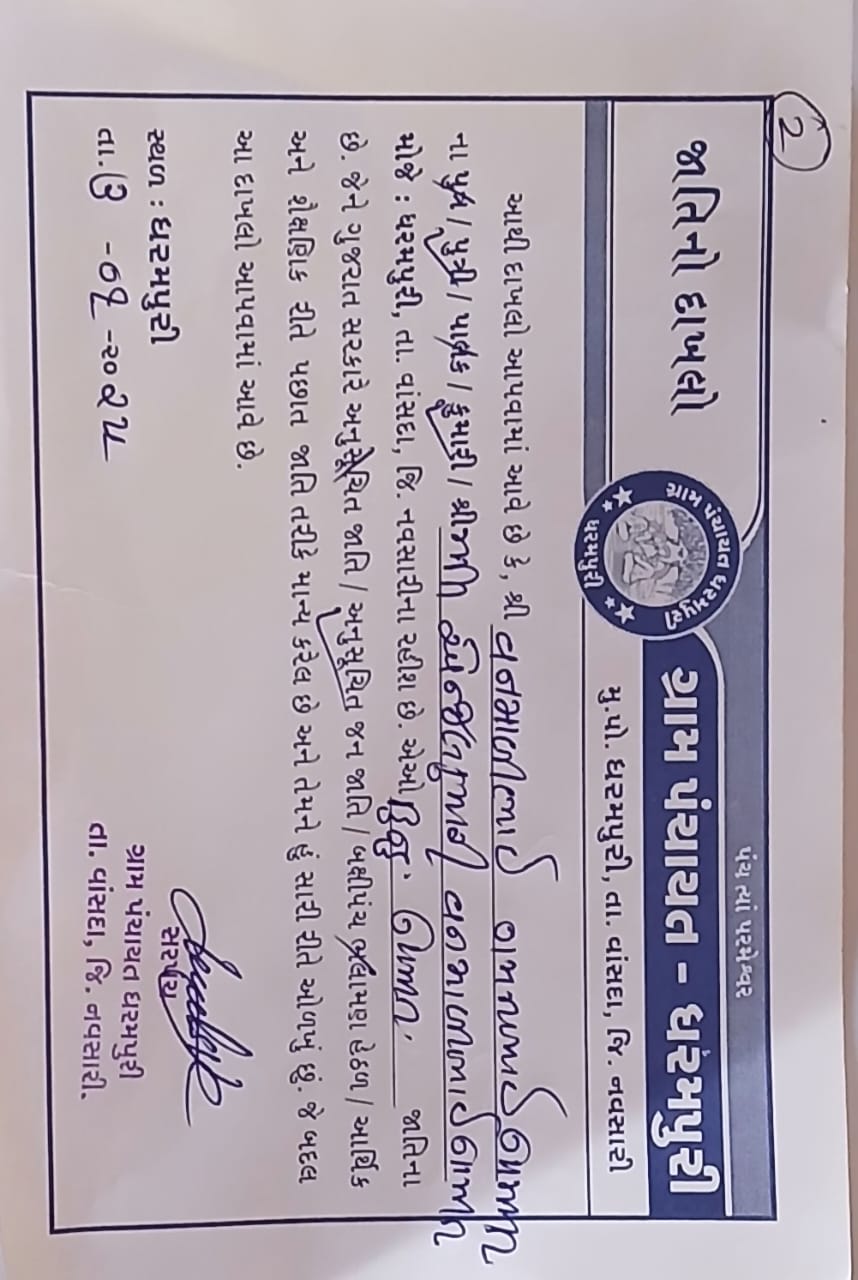 2
પંચ ત્યાં પરમેશ્વર
જાતિનો દાખલો
ગ્રામ પંચાયત ધરમપુરી
ધરમપુરી
ગ્રામ પંચાયત - ધરમપુરી
મુ.પો. ધરમપુરી, તા. વાંસદા, જિ. નવસારી
આથી દાખલો આપવામાં આવે છે કે, શ્રી વનમાળીભાઈ
ના પુત્ર / પુત્રી / પાલક / કુમારી / શ્રીમતી વનમાળીભાઈ
મોજે : ધરમપુરી, તા. વાંસદા, જિ. નવસારીના રહીશ છે. એઓ હિન્દુ જાતિના
છે. જેને ગુજરાત સરકારે અનુસૂચિત જાતિ / અનુસૂચિત જન જાતિ / બક્ષીપંચ ભલામણ હેઠળ / આર્થિક
અને શૈક્ષણિક રીતે પછાત જાતિ તરીકે માન્ય કરેલ છે અને તેમને હું સારી રીતે ઓળખું છું. જે બદલ
આ દાખલો આપવામાં આવે છે.
સ્થળ : ધરમપુરી
તા. -૨૦૨૫
સરપંચ
ગ્રામ પંચાયત ધરમપુરી
તા. વાંસદા, જિ. નવસારી.